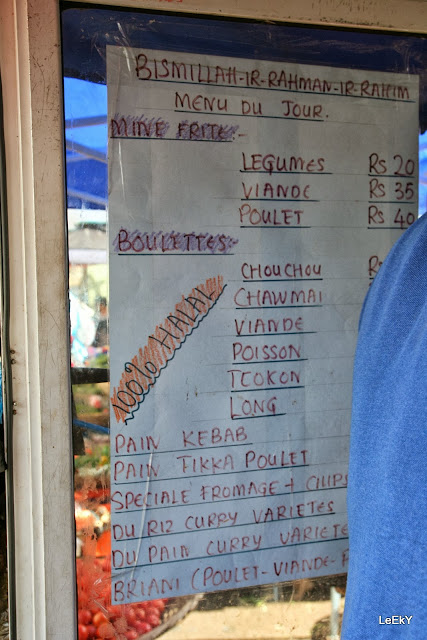 BISMILLAH-IR-RAHMAN-IR-RAHIM
MENU DU JOUR.
MINE FRITE:-
LEGUMES Rs 20
VIANDE Rs 35
POULET Rs 40
BOULETTES:-
CHOUCHOU
CHAWMAI
VIANDE
POISSON
TEOKON
LONG
100% HALAL
PAIN KEBAB
PAIN TIKKA POULET
SPECIALE FROMAGE + CHIPS
DU RIZ CURRY VARIETES
DU PAIN CURRY VARIETE
BRIANI (POULET-VIANDE-
LeEkY